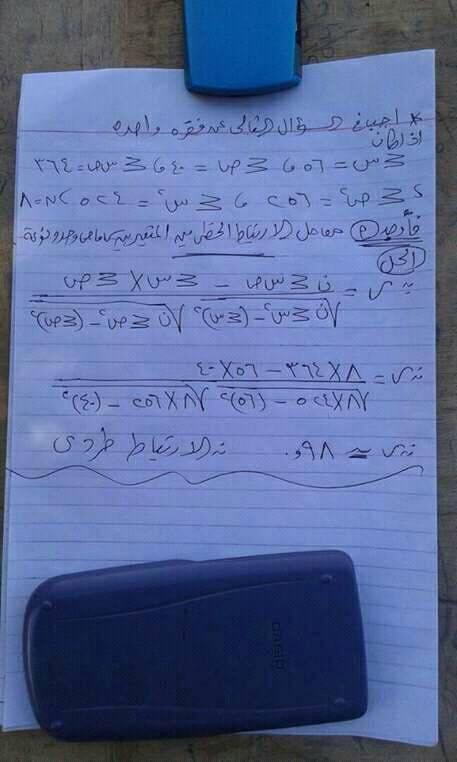 * اجيب عن السؤال التالى عن فقره واحده
اذا كان
∑ س = ٥٦ ، ∑ ص = ٤٠ ، ∑ س ص = ٣٦٤
∑ ص² = ٢٥٦ ، ∑ س² = ٥٢٤ ، ن = ٨
فأوجد معامل الارتباط الخطى بين المتغيرين س ، ص وحدد نوعه
الحل
∴ ر = ن ∑ س ص - ∑ س × ∑ ص
√ن ∑ س² - (∑ س)² √ن ∑ ص² - (∑ ص)²
∴ ر = ٨ × ٣٦٤ - ٥٦ × ٤٠
√٨ × ٥٢٤ - (٥٦)² √٨ × ٢٥٦ - (٤٠)²
∴ ر ≃ ٩٨و. ∴ الارتباط طردى
CASIO